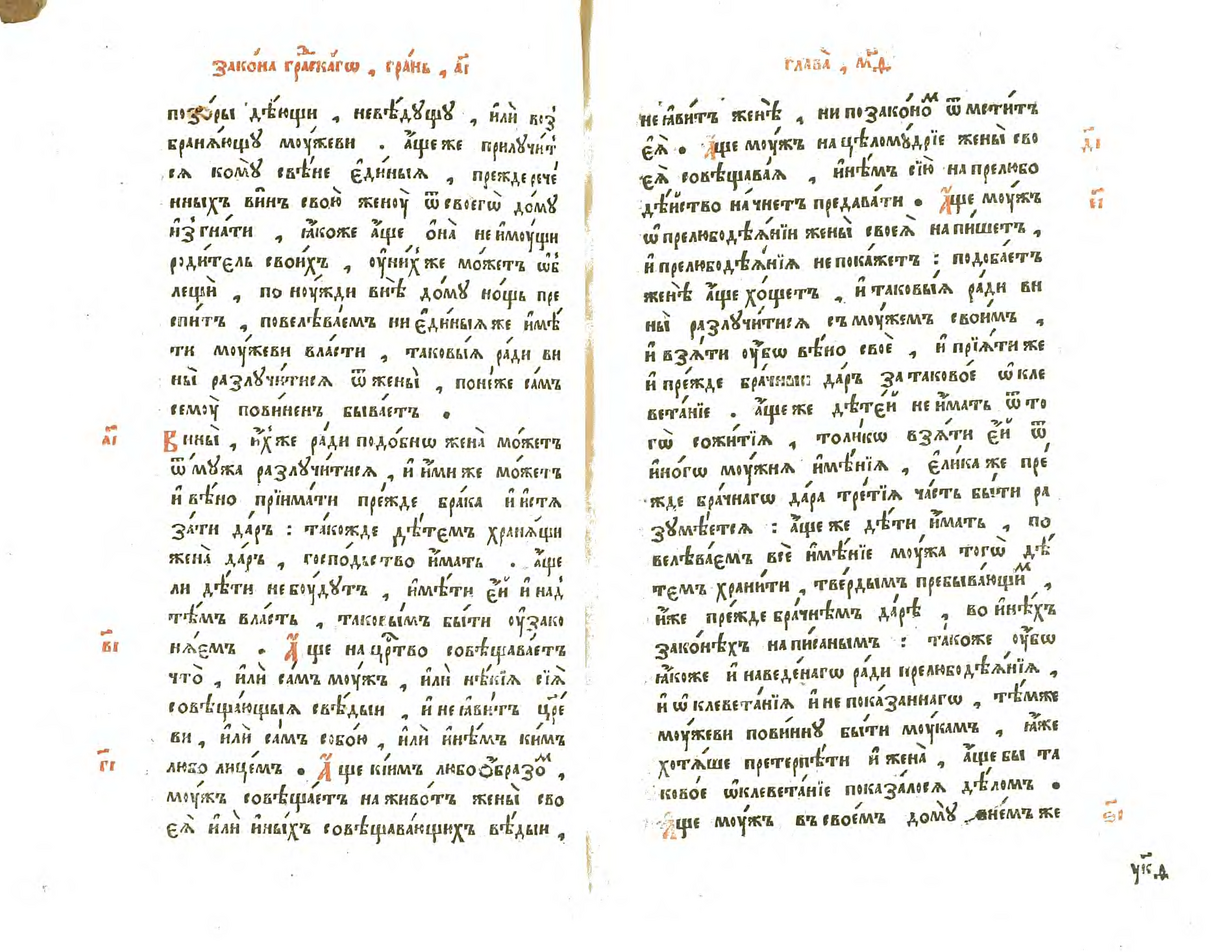 Зако́на гра́дскагѡ , гра́нь , а҃і
позо́ры дѣ́ющи , невѣ́дꙋщꙋ , и҆лѝ воз̾
бранѧ́ющꙋ моу́жеви . а҆́ще же прилꙋчи́т
сѧ комꙋ̀ свѣ́не є҆ди́ныѧ , прежде рече́
нныхъ ви́нъ свою̀ женоу̀ ѿ своегѡ̀ до́мꙋ
и҆згна́ти , ꙗ҆́коже а҆́ще ѻ҆на̀ не и҆моу́щи
роди́тель свои́хъ , оу҆ни́х же мо́жетъ ѡ҆б̾
лещѝ , по ноу́жди внѣ̀ до́мꙋ но́щь пре
спи́тъ , повелѣва́емъ ни є҆ди́ныѧ же и҆мѣ́
ти моу́жеви вла́сти , таковы́ѧ ра́ди ви
ны̀ разлꙋчи́тисѧ ѿ жены̀ , поне́же са́мъ
семоу̀ пови́ненъ быва́етъ .
а҃і
Вины̀ , и҆́хже ра́ди подо́бнѡ жена̀ мо́жетъ
ѿ мꙋ́жа разлꙋчи́тисѧ , и҆ и҆́миже мо́жетъ
и҆ вѣ́но прїима́ти пре́жде бра́ка и҆ и҆стѧ
за́ти да́ръ : та́кожде дѣ́темъ хранѧ́щи
жена̀ да́ръ , госпо́дьство и҆́мать . а҆́ще
ли дѣ́ти не боу́дꙋтъ , и҆мѣ́ти є҆́й и҆ над̾
тѣ́мъ вла́сть , таковы́мъ бы́ти оу҆зако
нѧ́емъ .
в҃і
А҆́ще на цр҃тво совѣщава́етъ
что̀ , и҆лѝ са́мъ моу́жъ , и҆лѝ нѣ́кїѧ сїѧ̀
совѣща́ющыѧ свѣ́дыи , и҆ не ꙗ҆ви́тъ цр҃е
ви , и҆лѝ са́мъ собо́ю , и҆лѝ и҆нѣ́мъ ки́мъ
любо лице́мъ .
г҃і
А҆́ще ки́имъ любо ѻ҆́бразом ,
моу́жъ совѣща́етъ на живо́тъ жены̀ сво
еѧ̀ и҆лѝ и҆ны́хъ совѣщава́ющихъ вѣ́дыи ,
глава̀ , м҃д
не ꙗ҆ви́тъ женѣ̀ , ни по зако́ном ѿмети́тъ
є҆ѧ̀ .
д҃і
А҆́ще моу́жъ на цѣломꙋ́дрїе жены̀ сво
еѧ̀ совѣщава́ѧ , и҆нѣ́мъ сїю̀ на прелюбо
дѣ́йство на́чнетъ предава́ти .
є҃і
А҆́ще моу́жъ
ѡ҆ прелюбодѣѧ́нїи жены̀ своеѧ̀ напи́шетъ ,
и҆ прелюбодѣѧ́нїѧ не пока́жетъ : подоба́етъ
женѣ̀ а҆́ще хо́щетъ , и҆ таковы́ѧ ра́ди ви
ны̀ разлꙋчи́тисѧ съ моу́жемъ свои́мъ ,
и҆ взѧ́ти оу҆́бѡ вѣ́но своѐ , и҆ прїѧ́ти же
и҆ пре́жде бра́чныи да́ръ за таково́е ѡ҆кле
вета́нїе . а҆́ще же дѣте́й не и҆́мать ѿ то
гѡ̀ сожи́тїѧ , толи́кѡ взѧ́ти є҆́й ѿ
и҆но́гѡ моу́жнѧ и҆мѣ́нїѧ , є҆ли́ка же пре́
жде бра́чнагѡ да́ра тре́тїѧ ча́сть бы́ти ра
зꙋмѣ́етсѧ : а҆́ще же дѣ́ти и҆́мать , по
велѣва́емъ всѐ и҆мѣ́нїе моу́жа тогѡ̀ дѣ́
темъ храни́ти , тве́рдымъ пребыва́ющим ,
и҆́же пре́жде бра́чнѣмъ да́рѣ , во и҆нѣ́хъ
зако́нѣхъ напи́санымъ : та́коже оу҆́бѡ
ꙗ҆́коже и҆ наведе́нагѡ ра́ди прелюбодѣѧ́нїѧ ,
и҆ ѡ҆клевета́нїѧ и҆ не пока́заннагѡ , тѣ́мже
моу́жеви пови́ннꙋ бы́ти моу́камъ , ꙗ҆́же
хотѧ́ше претерпѣ́ти и҆ жена̀ , а҆́ще бы та
ково́е ѡ҆клевета́нїе показа́лосѧ дѣ́ломъ .
ѕ҃і
А҆́ще моу́жъ въ свое́мъ домꙋ̀ , внемъ же
ук҃д